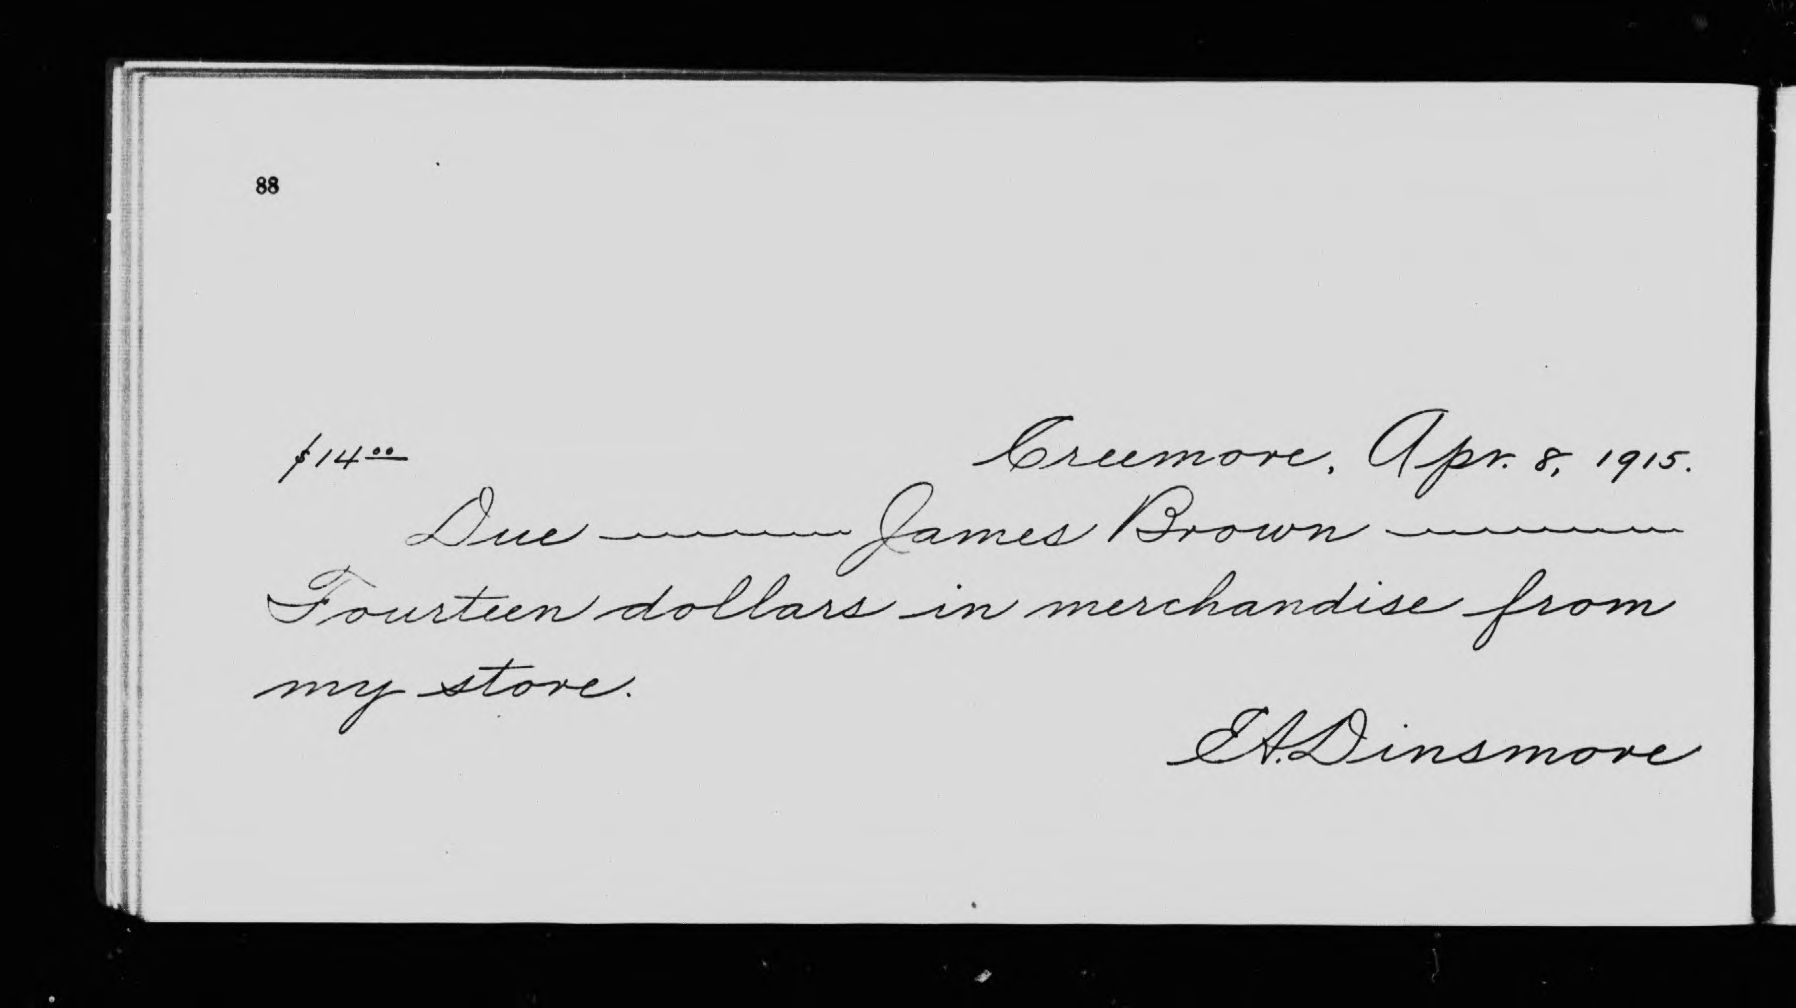 88
$14.00 Creemore, Apr. 8, 1915.
Due James Brown
Fourteen dollars in merchandise from
my store.
E A. Dinsmore